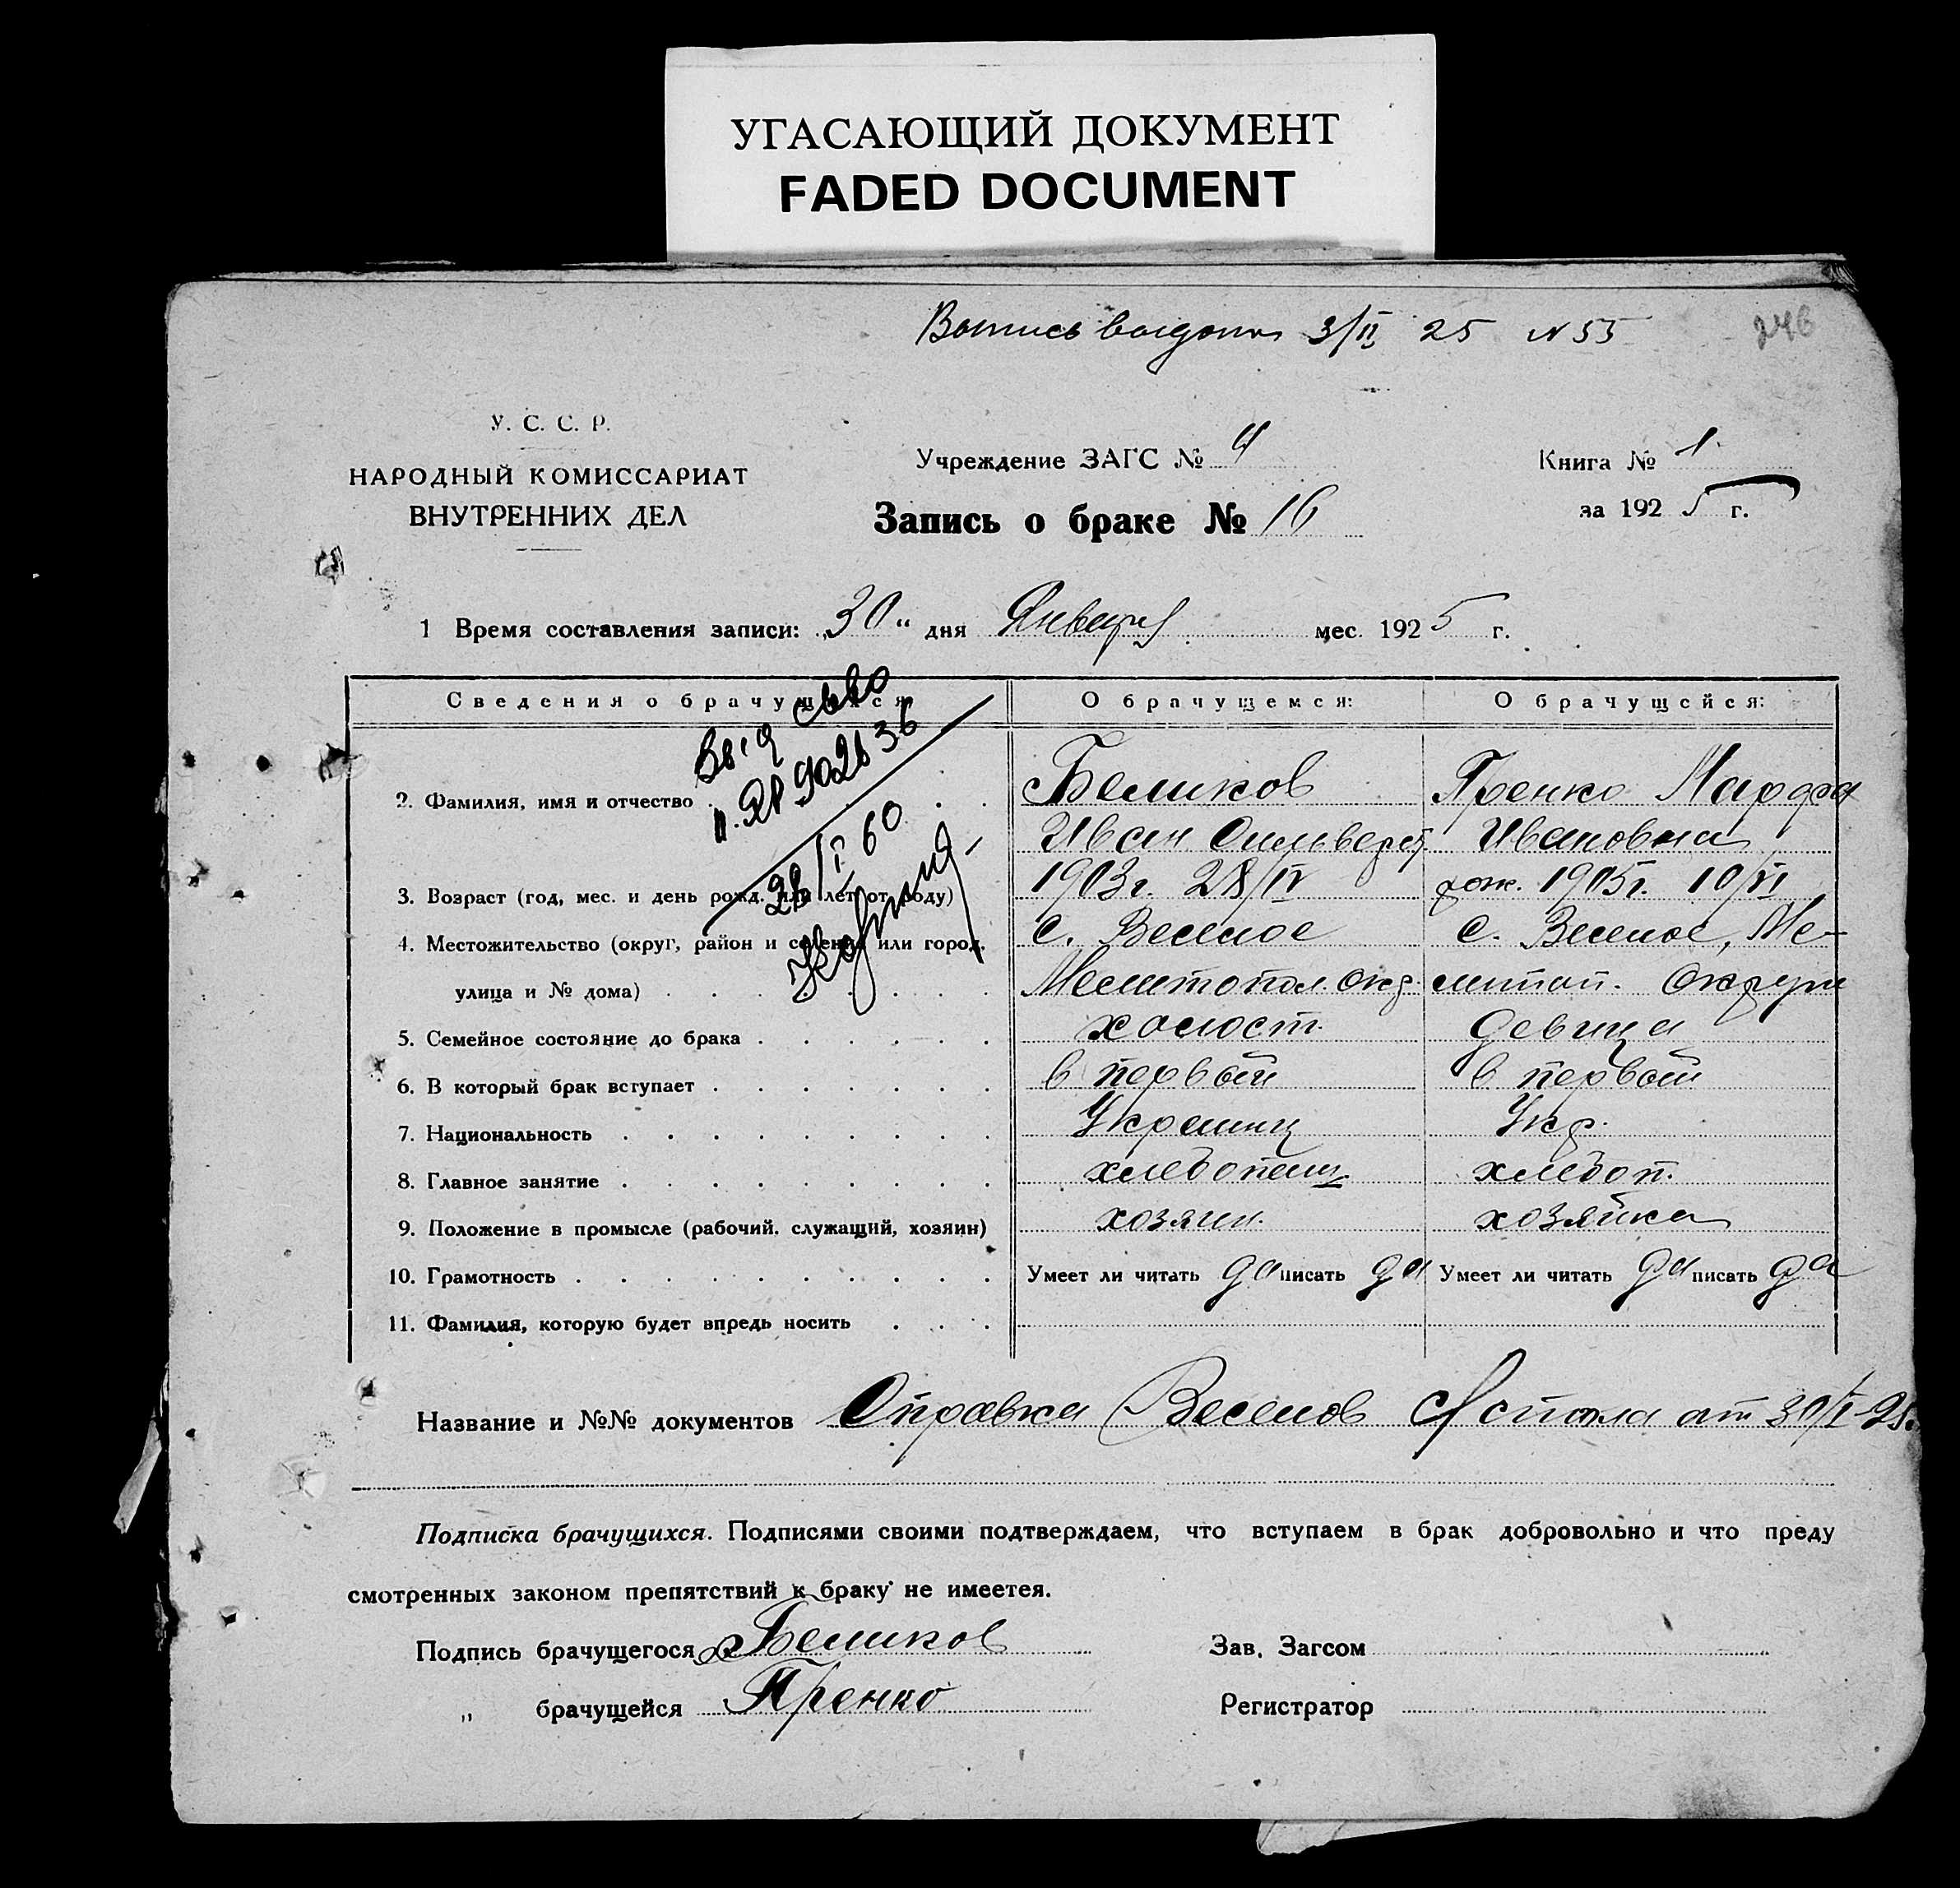 УГАСАЮЩИЙ ДОКУМЕНТ
FADED DOCUMENT
Выпись выдана 3/II 25 N 55
246
У. С. С. Р.
НАРОДНЫЙ КОМИССАРИАТ
ВНУТРЕННИХ ДЕЛ
Учреждение ЗАГС № 4
Запись о браке № 16
Книга № 1
за 1925 г.
1 Время составления записи: „30“ дня Января мес. 1925 г.
Сведения о брачущихся О брачущемся: О брачущейся:
Выд св-во
28/I 60
2. Фамилия, имя и отчество Беликов Пренко Марфа
Иван Сильвер. Ивановна
3. Возраст (год, мес. и день рожд. или лет от роду) 1903г. 28/IV рож. 1905г. 10/VI
4. Местожительство (округ, район и селение или город, с. Веселое с. Веселое, Ме-
улица и № дома) Мелитопол. окр. литоп. Округи
5. Семейное состояние до брака холост. девица
6. В который брак вступает в первый в первый
7. Национальность Украинц Укр.
8. Главное занятие хлебопашц. хлебоп.
9. Положение в промысле (рабочий, служащий, хозяин) хозяин. хозяйка
10. Грамотность Умеет ли читать да писать да Умеет ли читать да писать да
11. Фамилия, которую будет впредь носить
Название и №№ документов Справка Веселов с/ стола от 30/I-25.
Подписка брачущихся. Подписями своими подтверждаем, что вступаем в брак добровольно и что преду
смотренных законом препятствий к браку не имеетея.
Подпись брачущегося Беликов Зав. Загсом
„ брачущейся Пренко Регистратор